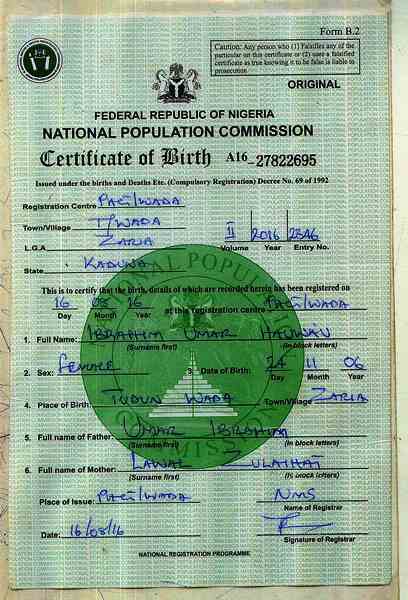 Form B.2
Caution: Any person who (1) Falsifies any of the
particular on this certificate or (2) uses a falsified
certificate as true knowing it to be false is liable to
prosecution.
ORIGINAL
FEDERAL REPUBLIC OF NIGERIA
NATIONAL POPULATION COMMISSION
Certificate of Birth A16 27822695
Issued under the births and Deaths Etc. (Compulsory Registration) Decree No. 69 of 1992
Registration Centre
Town/Village T/WADA
L.G.A ZARIA
II 2016 2346
Volume Year Entry No.
State KADUNA
This is to certify that the birth, details of which are recorded herein has been registered on
16 08 16 at this registration centre
Day Month Year
1. Full Name: IBRAHIM UMAR
(Surname first) (in block letters)
2. Sex: Female 3. Date of Birth: 24 11 06
Day Month Year
4. Place of Birth: TUDUN WADA Town/Village ZARIA
5. Full name of Father: UMAR IBRAHIM
(Surname first) (in block letters)
6. Full name of Mother: LAWAL ZULAIHAT
(Surname first) (in block letters)
Place of Issue:
NMS
Name of Registrar
Date: 16/08/16
Signature of Registrar
NATIONAL REGISTRATION PROGRAMME